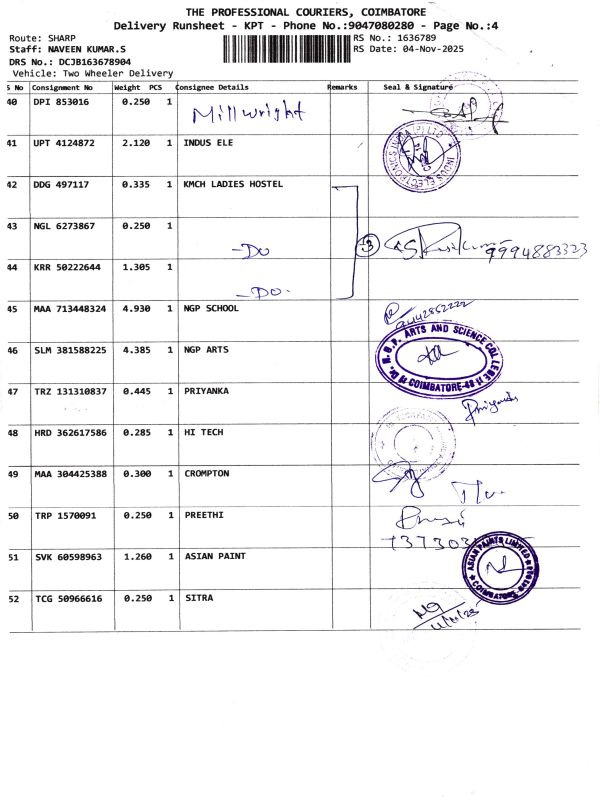 THE PROFESSIONAL COURIERS, COIMBATORE
Delivery Runsheet - KPT - Phone No.:9047080280 - Page No.:4
Route: SHARP
RS No.: 1636789
Staff: NAVEEN KUMAR.S
RS Date: 04-Nov-2025
DRS No.: DCJB163678904
Vehicle: Two Wheeler Delivery
S No Consignment No Weight PCS Consignee Details Remarks Seal & Signature
40 DPI 853016 0.250 1 Millwright
41 UPT 4124872 2.120 1 INDUS ELE
INDUS ELECTRONICS
42 DDG 497117 0.335 1 KMCH LADIES HOSTEL
43 NGL 6273867 0.250 1
-DO 13 9994883323
44 KRR 50222644 1.305 1
-DO-
45 MAA 713448324 4.930 1 NGP SCHOOL
46 SLM 381588225 4.385 1 NGP ARTS
Dr. N.G.P. ARTS AND SCIENCE COLLEGE
COIMBATORE-48
47 TRZ 131310837 0.445 1 PRIYANKA Priyanka
48 HRD 362617586 0.285 1 HI TECH
49 MAA 304425388 0.300 1 CROMPTON
50 TRP 1570091 0.250 1 PREETHI
51 SVK 60598963 1.260 1 ASIAN PAINT
ASIAN PAINTS LIMITED
COIMBATORE
52 TCG 50966616 0.250 1 SITRA